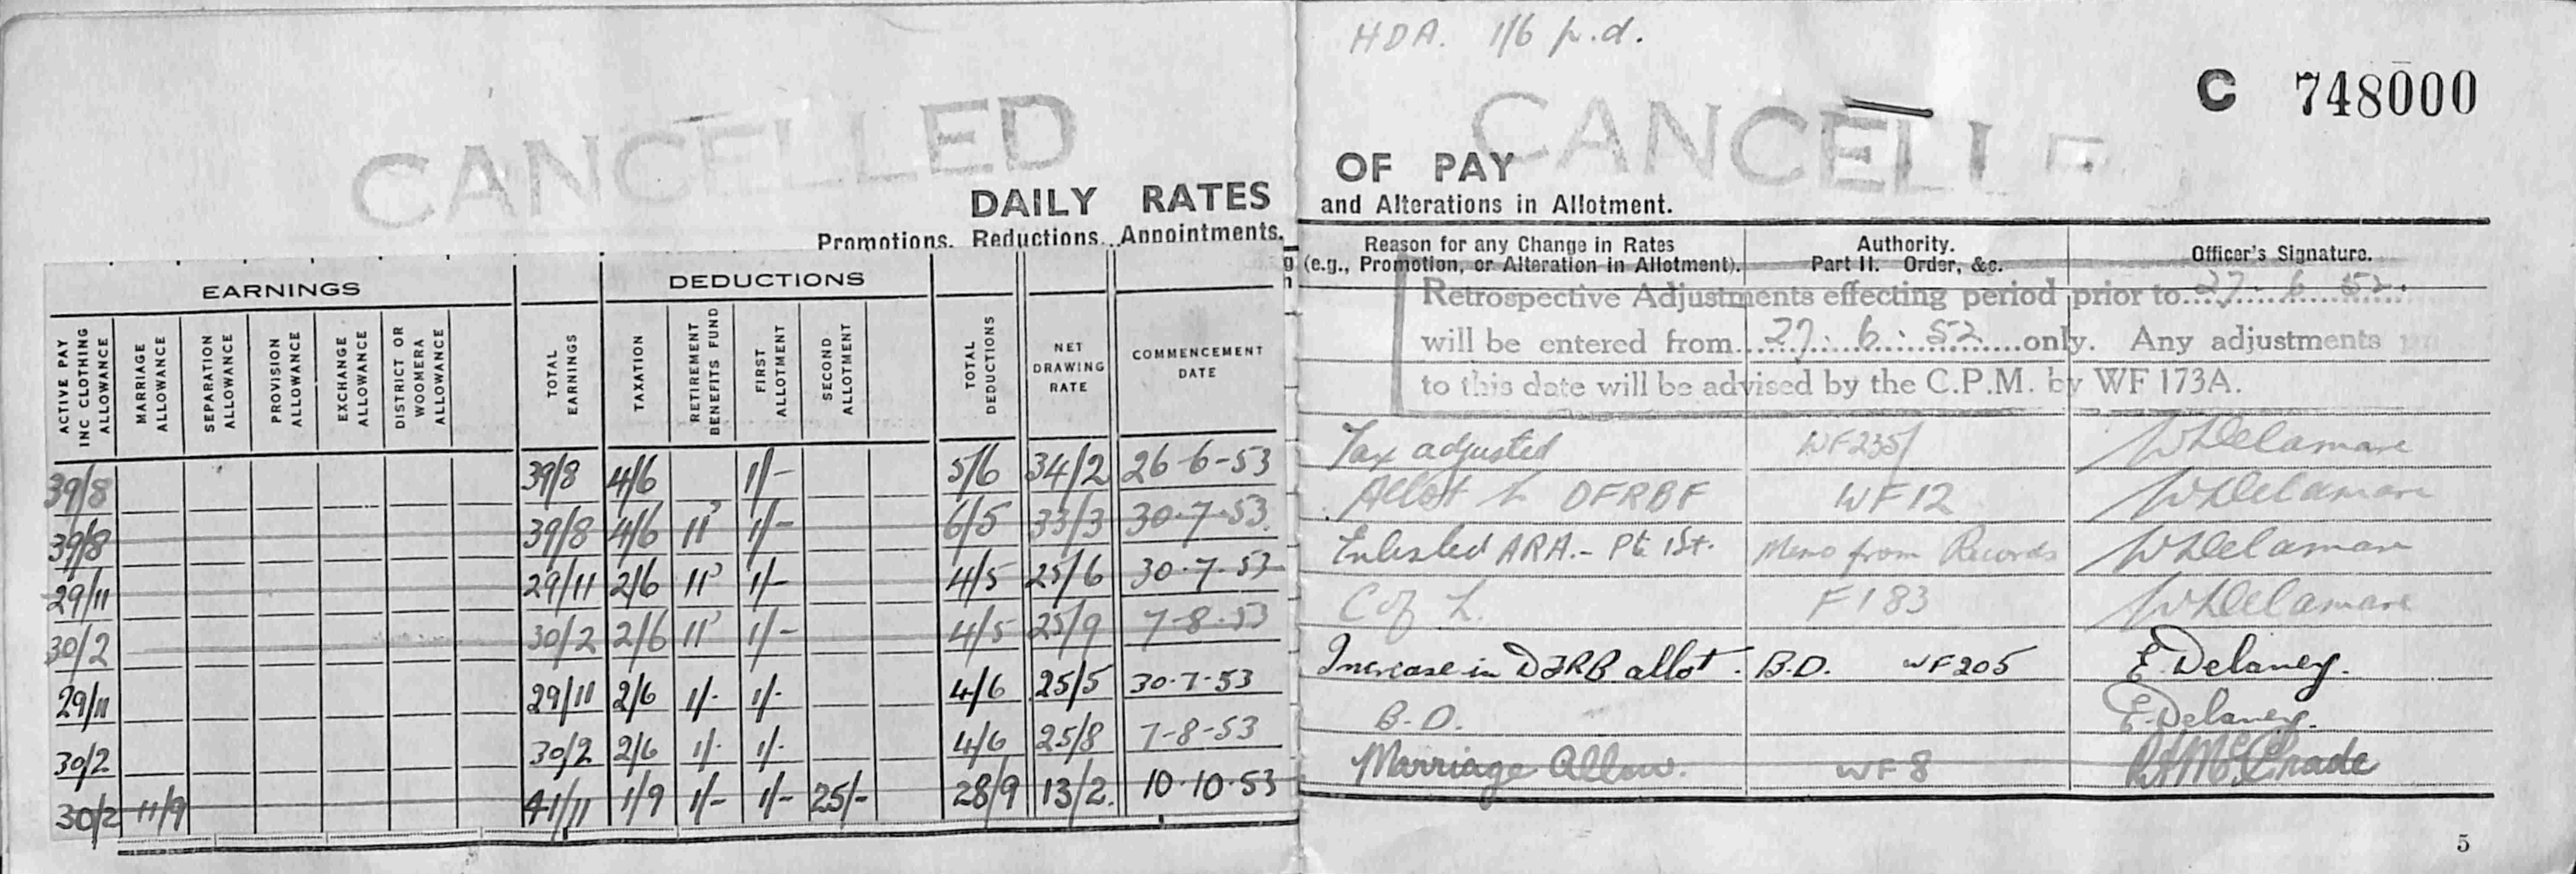 HDA. 1/6 p.d.
C 748000
CANCELLED
CANCELLE
DAILY RATES OF PAY
Promotions, Reductions, Appointments, and Alterations in Allotment.
EARNINGS
DEDUCTIONS
ACTIVE PAY INC CLOTHING ALLOWANCE
MARRIAGE ALLOWANCE
SEPARATION ALLOWANCE
PROVISION ALLOWANCE
EXCHANGE ALLOWANCE
DISTRICT OR WOOMERA ALLOWANCE
TOTAL EARNINGS
TAXATION
RETIREMENT BENEFITS FUND
FIRST ALLOTMENT
SECOND ALLOTMENT
TOTAL DEDUCTIONS
NET DRAWING RATE
COMMENCEMENT DATE
Reason for any Change in Rates
(e.g., Promotion, or Alteration in Allotment).
Authority.
Part II. Order, &c.
Officer's Signature.
Retrospective Adjustments effecting period prior to 27. 6. 52.
will be entered from 27. 6. 52 only. Any adjustments
to this date will be advised by the C.P.M. by WF 173A.
39/8 39/8 4/6 1/- 5/6 34/2 26-6-53 Tax adjusted WF235/ WDelamare
39/8 39/8 4/6 11 1/- 6/5 33/3 30-7-53 Allot to DFRBF WF12 WDelamare
29/11 29/11 2/6 11 1/- 4/5 25/6 30-7-53 Enlisted ARA.- Pte 1st. Memo from Records WDelamare
30/2 30/2 2/6 11 1/- 4/5 25/9 7-8-53 C of L. F183 WDelamare
29/11 29/11 2/6 1/- 1/- 4/6 25/5 30-7-53 Increase in DFRB allot. B.D. WF205 E. Delaney.
30/2 30/2 2/6 1/- 1/- 4/6 25/8 7-8-53 B.D. E. Delaney.
30/2 11/9 41/11 1/9 1/- 1/- 25/- 28/9 13/2. 10-10-53 Marriage Allow. WF8
5